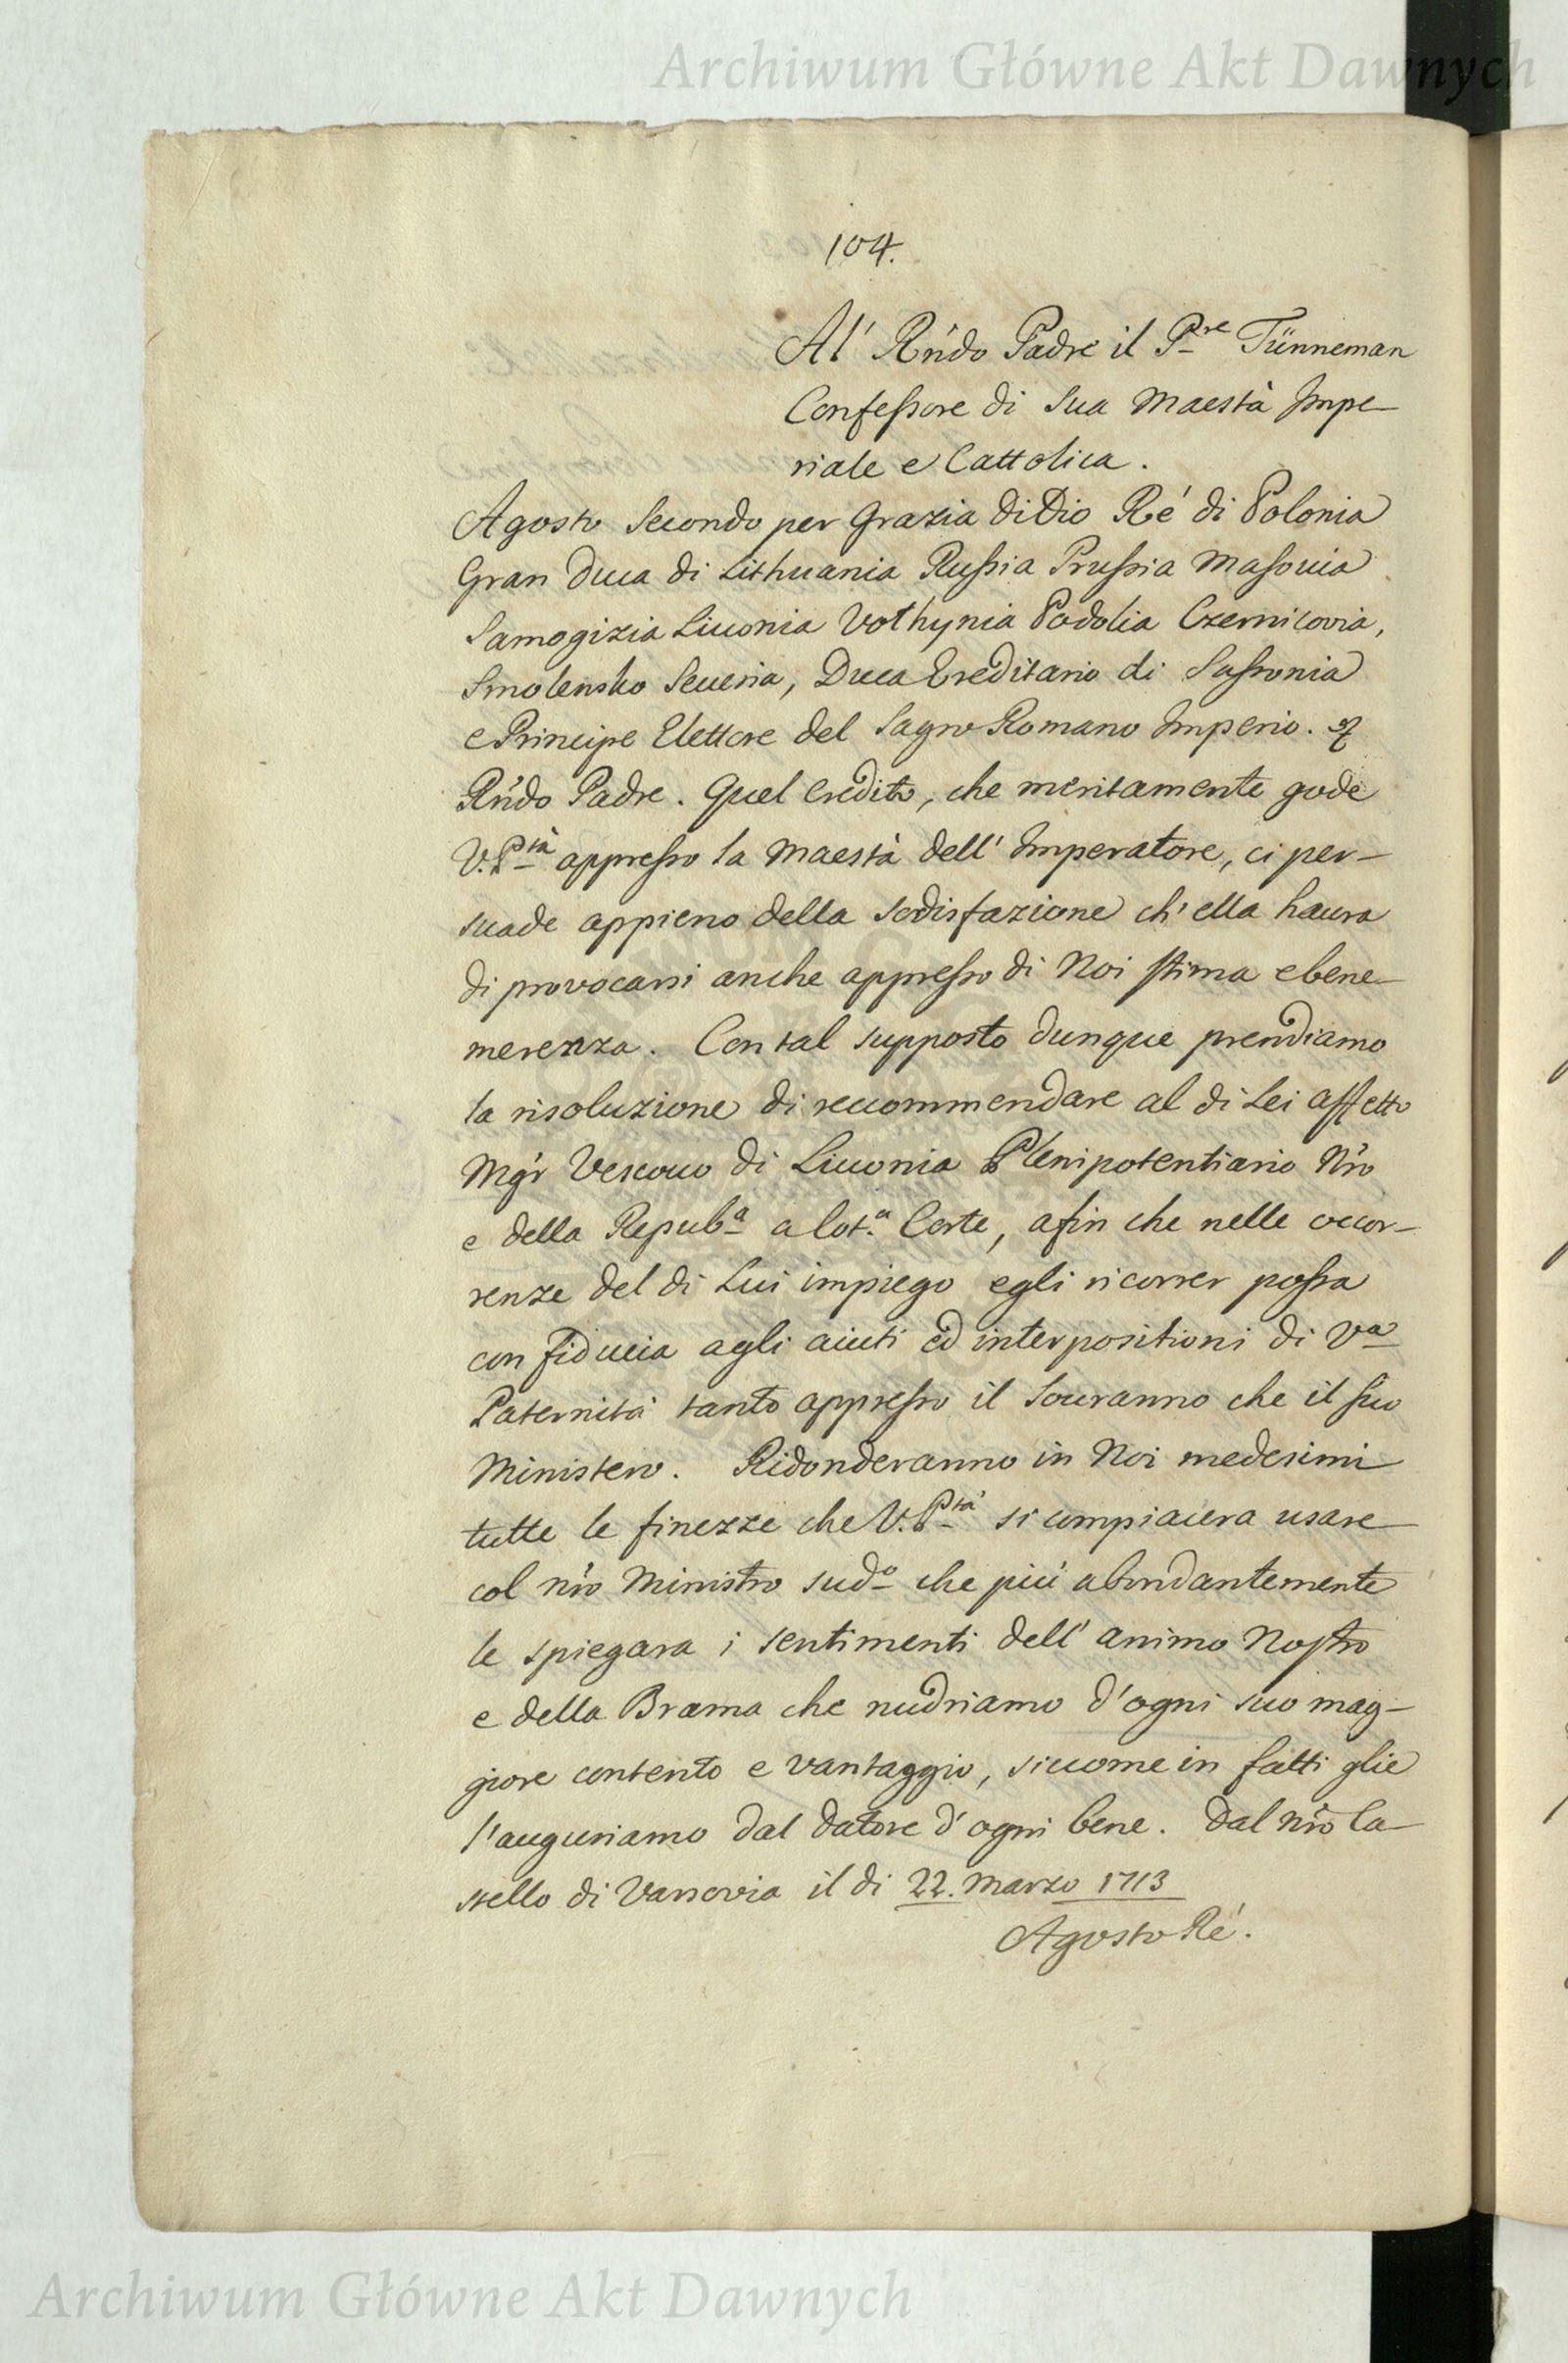 Archiwum Główne Akt Dawnych
104.
Al' Rńdo Padre il Pre Tünneman
Confessore di Sua Maestà Impe-
riale e Cattolica.
Agosto Secondo per Grazia di Dio Ré di Polonia
Gran Duca di Lithuania Russia Prussia Masouia
Samogizia Liuonia Vothynia Podolia Czernicovia,
Smolensko Seueria, Duca Ereditario di Sassonia
e Principe Elettore del Sagro Romano Imperio.
Rńdo Padre. Quel credito, che meritamente gode
V. Ptà appresso la Maestà dell' Imperatore, ci per-
suade appieno della sodisfazione ch' ella haura
di provocarsi anche appresso di Noi stima e bene-
merenza. Con tal supposto dunque prendiamo
la risoluzione di reccommendare al di Lei affetto
Mǵr Vescouo di Liuonia Plenipotentiario Nŕo
e della Repuba a cot.a Corte, afin che nelle occor-
renze del di Lui impiego egli ricorrer possa
con fiducia agli aiuti ed interpositioni di Va
Paternità tanto appresso il Souranno che il suo
Ministero. Ridonderanno in Noi medesimi
tutte le finezze che V. Ptà si compiacera usare
col nŕo Ministro sudo che piú abondantemente
le spiegara i sentimenti dell' animo Nostro
e della Brama che nudriamo d' ogni suo mag-
giore contento e vantaggio, siccome in fatti glie
l'auguriamo dal datore d' ogni bene. Dal nŕo Ca-
stello di Varsovia il di 22. Marzo 1713
Agosto Ré.
Archiwum Główne Akt Dawnych